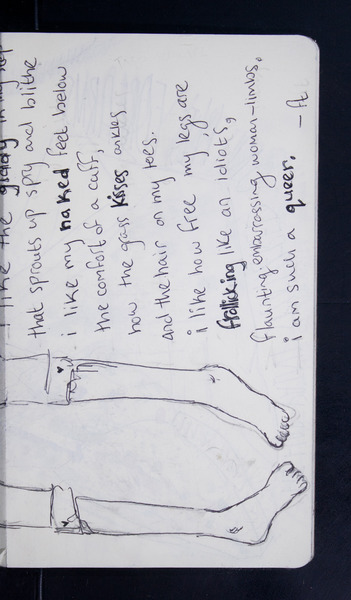 i like the giddy in my hop
that sprouts up spry and blithe
i like my naked feet below
the comfort of a cuff,
how the grass kisses ankles
and the hair on my toes.
i like how free my legs are
frollicking like an idiots,
flaunting embarrassing woman-limbs,
i am such a queer. -A